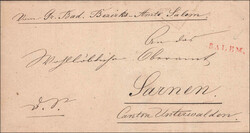 Vom Gr. Bad. Bezirks-Amte Salem
SALEM.
An das
Wohllöbliche Oberamt
Sarnen,
d. S.
Canton Unterwalden